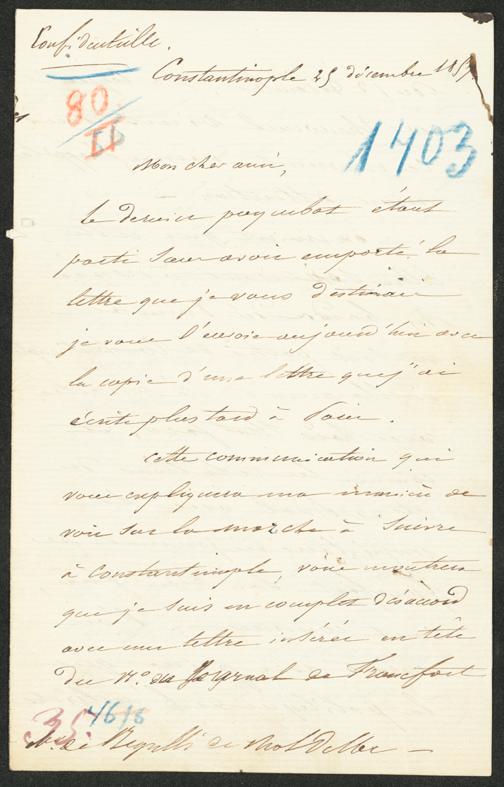 Confidentielle.
Constantinople 25 décembre 185
80
1403
Mon cher ami,
le dernier paquebot étant
parti sans avoir emporté la
lettre que je vous destinais
je vous l'envoie aujourd'hui avec
la copie d'une lettre que j'ai
écrite plus tard à Paris.
cette communication qui
vous expliquera ma manière de
voir sur la marche à suivre
à Constantinople, vous montrera
que je suis en complet désaccord
avec une lettre insérée en tête
du No. du Journal de Francfort
35 4616
de